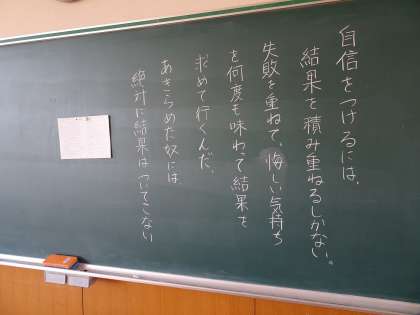 自信をつけるには、
結果を積み重ねるしかない。
失敗を重ねて、悔しい気持ち
を何度も味わって結果を
求めて行くんだ、
あきらめた奴には
絶対に結果はついてこない